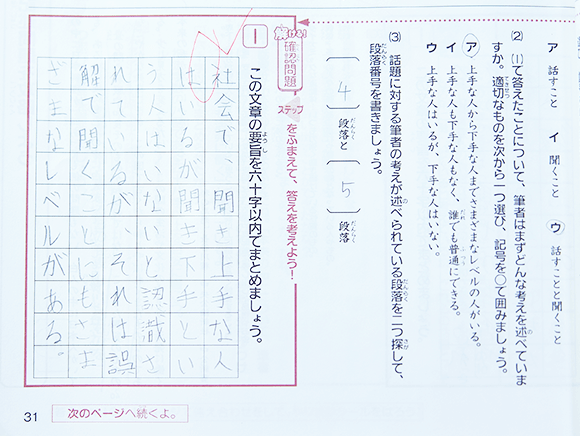 ア　話すこと　イ　聞くこと　ウ　話すことと聞くこと
(2)　(1)で答えたことについて、筆者はまずどんな考えを述べていま
すか。適切なものを次から一つ選び、記号を○で囲みましょう。
ア　上手な人から下手な人までさまざまなレベルの人がいる。
イ　上手な人も下手な人もなく、誰でも普通にできる。
ウ　上手な人はいるが、下手な人はいない。
(3)　話題に対する筆者の考えが述べられている段落を二つ探して、
段落番号を書きましょう。
〔4〕段落と〔5〕段落
解ける！確認問題　ステップをふまえて、答えを考えよう！
1　この文章の要旨を六十字以内でまとめましょう。
社会で、聞き上手な人
はいるが、聞き下手とい
う人はいないと認識さ
れているが、それは誤
解で聞くことにもさま
ざまなレベルがある。
31　次のページへ続くよ。